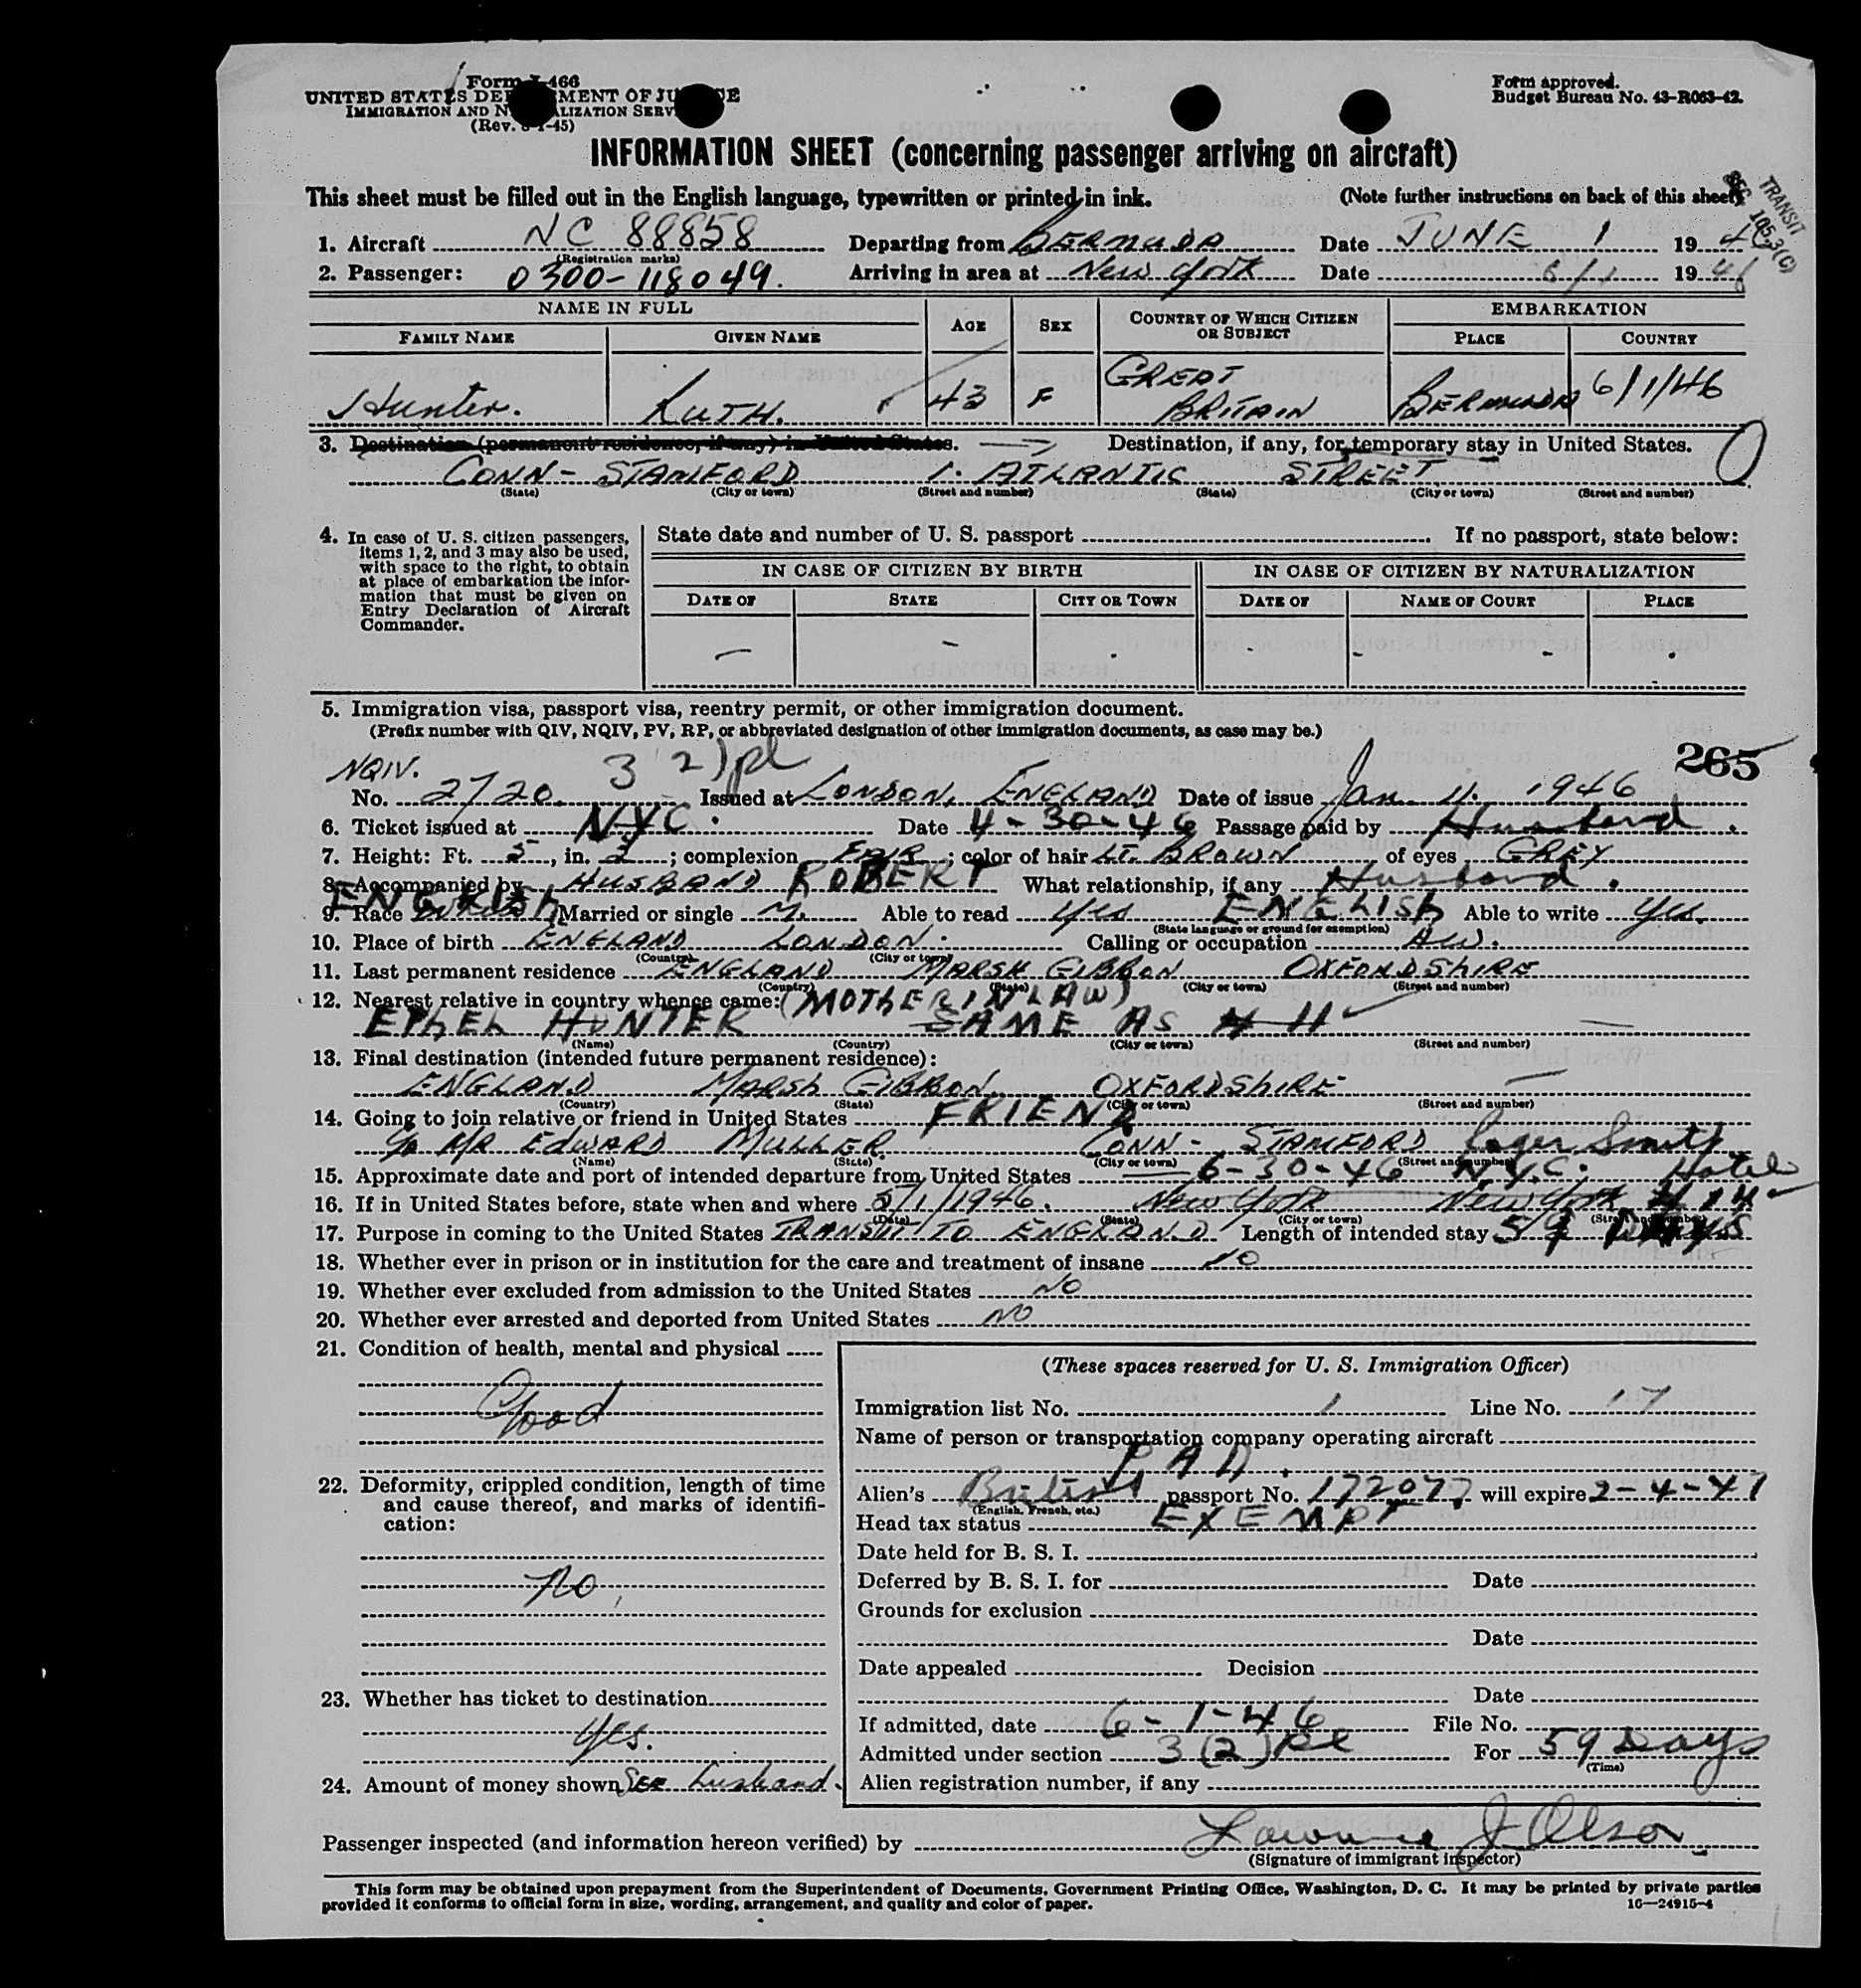 Form I-466
UNITED STATES DEPARTMENT OF JUSTICE
IMMIGRATION AND NATURALIZATION SERVICE
(Rev. 8-1-45)
Form approved.
Budget Bureau No. 43-R063-42.
INFORMATION SHEET (concerning passenger arriving on aircraft)
This sheet must be filled out in the English language, typewritten or printed in ink. (Note further instructions on back of this sheet)
TRANSIT
SEC 105.3(C)
1. Aircraft NC 88858 Departing from BERMUDA Date JUNE 1 1946
(Registration marks)
2. Passenger: 0300-118049. Arriving in area at New York Date 6/1 1946
NAME IN FULL EMBARKATION
FAMILY NAME GIVEN NAME AGE SEX COUNTRY OF WHICH CITIZEN OR SUBJECT PLACE COUNTRY
Hunter. RUTH. 43 F GREAT BRITAIN BERMUDA 6/1/46
3. Destination (permanent residence, if any) in United States. Destination, if any, for temporary stay in United States. 0
CONN - STAMFORD 1. ATLANTIC STREET
(State) (City or town) (Street and number) (State) (City or town) (Street and number)
4. In case of U. S. citizen passengers, items 1, 2, and 3 may also be used, with space to the right, to obtain at place of embarkation the information that must be given on Entry Declaration of Aircraft Commander.
State date and number of U. S. passport If no passport, state below:
IN CASE OF CITIZEN BY BIRTH IN CASE OF CITIZEN BY NATURALIZATION
DATE OF STATE CITY OR TOWN DATE OF NAME OF COURT PLACE
5. Immigration visa, passport visa, reentry permit, or other immigration document.
(Prefix number with QIV, NQIV, PV, RP, or abbreviated designation of other immigration documents, as case may be.)
NQIV. 3(2)pl 265
No. 2720. Issued at LONDON, ENGLAND Date of issue Jan. 11. 1946
6. Ticket issued at NYC. Date 4-30-46 Passage paid by Husband.
7. Height: Ft. 5, in. 2; complexion FAIR; color of hair LT. BROWN of eyes GREY
8. Accompanied by HUSBAND ROBERT What relationship, if any Husband.
9. Race ENGLISH Married or single M. Able to read yes ENGLISH Able to write yes.
(State language or ground for exemption)
10. Place of birth ENGLAND LONDON. Calling or occupation H.W.
(Country) (City or town)
11. Last permanent residence ENGLAND MARSH GIBBON OXFORDSHIRE
(Country) (State) (City or town) (Street and number)
12. Nearest relative in country whence came: (MOTHER IN LAW)
EThEL HUNTER SAME AS # 11
(Name) (Country) (City or town) (Street and number)
13. Final destination (intended future permanent residence):
ENGLAND MARSH GIBBON OXFORDSHIRE
(Country) (State) (City or town) (Street and number)
14. Going to join relative or friend in United States FRIEND
c/o MR EDWARD MULLER CONN - STAMFORD Roger Smith Hotel
(Name) (State) (City or town) (Street and number)
15. Approximate date and port of intended departure from United States 6-30-46 N.Y.C.
16. If in United States before, state when and where 5/1/1946. New York New York
(Date) (State) (City or town) (Street and number)
17. Purpose in coming to the United States TRANSIT TO ENGLAND Length of intended stay 59 DAYS
18. Whether ever in prison or in institution for the care and treatment of insane NO
19. Whether ever excluded from admission to the United States NO
20. Whether ever arrested and deported from United States NO
21. Condition of health, mental and physical
Good
22. Deformity, crippled condition, length of time and cause thereof, and marks of identification:
No
23. Whether has ticket to destination
Yes.
24. Amount of money shown See husband.
(These spaces reserved for U. S. Immigration Officer)
Immigration list No. 1 Line No. 17
Name of person or transportation company operating aircraft
P A A.
Alien's British passport No. 172077 will expire 2-4-47
(English, French, etc.)
Head tax status EXEMPT
Date held for B. S. I.
Deferred by B. S. I. for Date
Grounds for exclusion
Date
Date appealed Decision
Date
If admitted, date 6-1-46 File No.
Admitted under section 3(2)pl For 59 Days
(Time)
Alien registration number, if any
Passenger inspected (and information hereon verified) by Lawrence J Olson
(Signature of immigrant inspector)
This form may be obtained upon prepayment from the Superintendent of Documents, Government Printing Office, Washington, D. C. It may be printed by private parties
provided it conforms to official form in size, wording, arrangement, and quality and color of paper. 16—24915-4